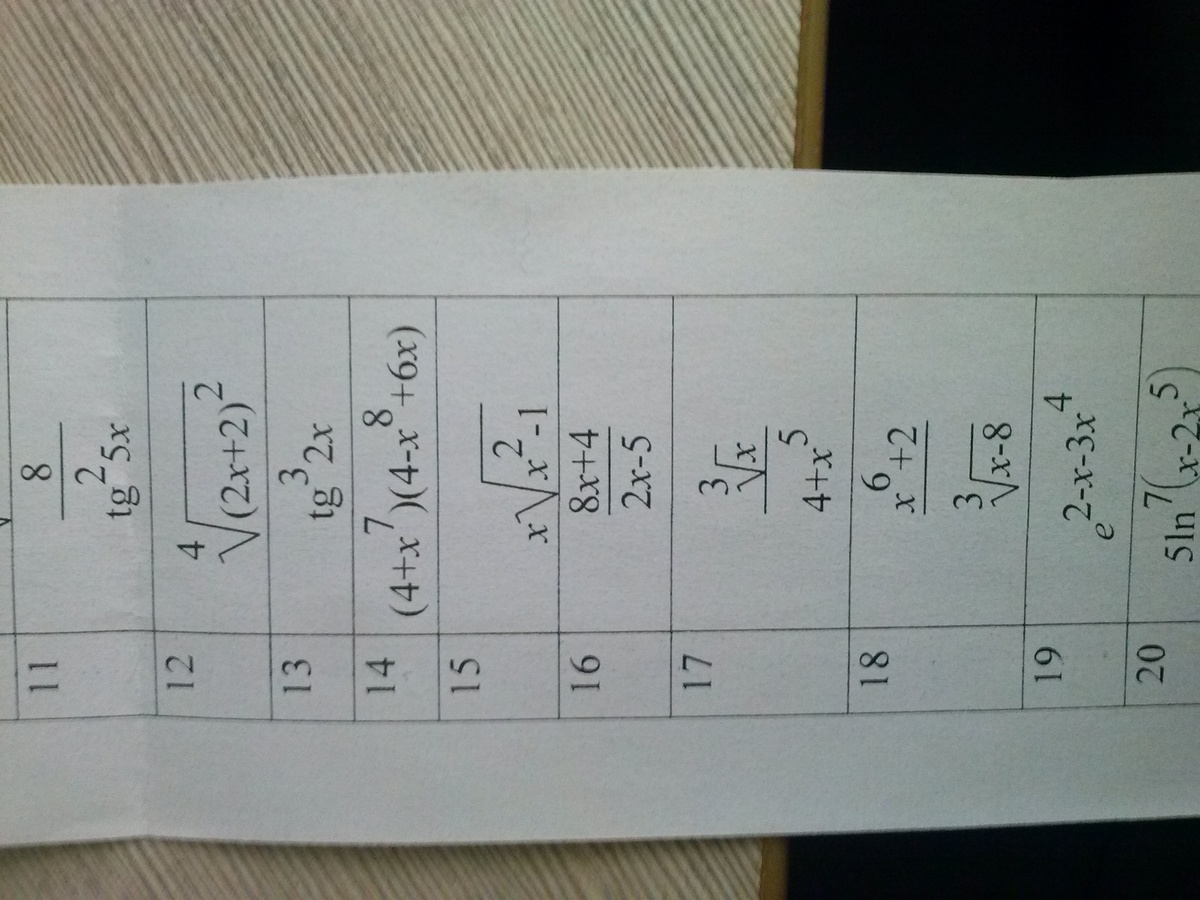 11 8/tg²5x
12 ⁴√(2x+2)²
13 tg³2x
14 (4+x⁷)(4-x⁸+6x)
15 x√x²-1
16 8x+4/2x-5
17 ³√x/4+x⁵
18 x⁶+2/³√x-8
19 e^2-x-3x⁴
20 5ln⁷(x-2x⁵)